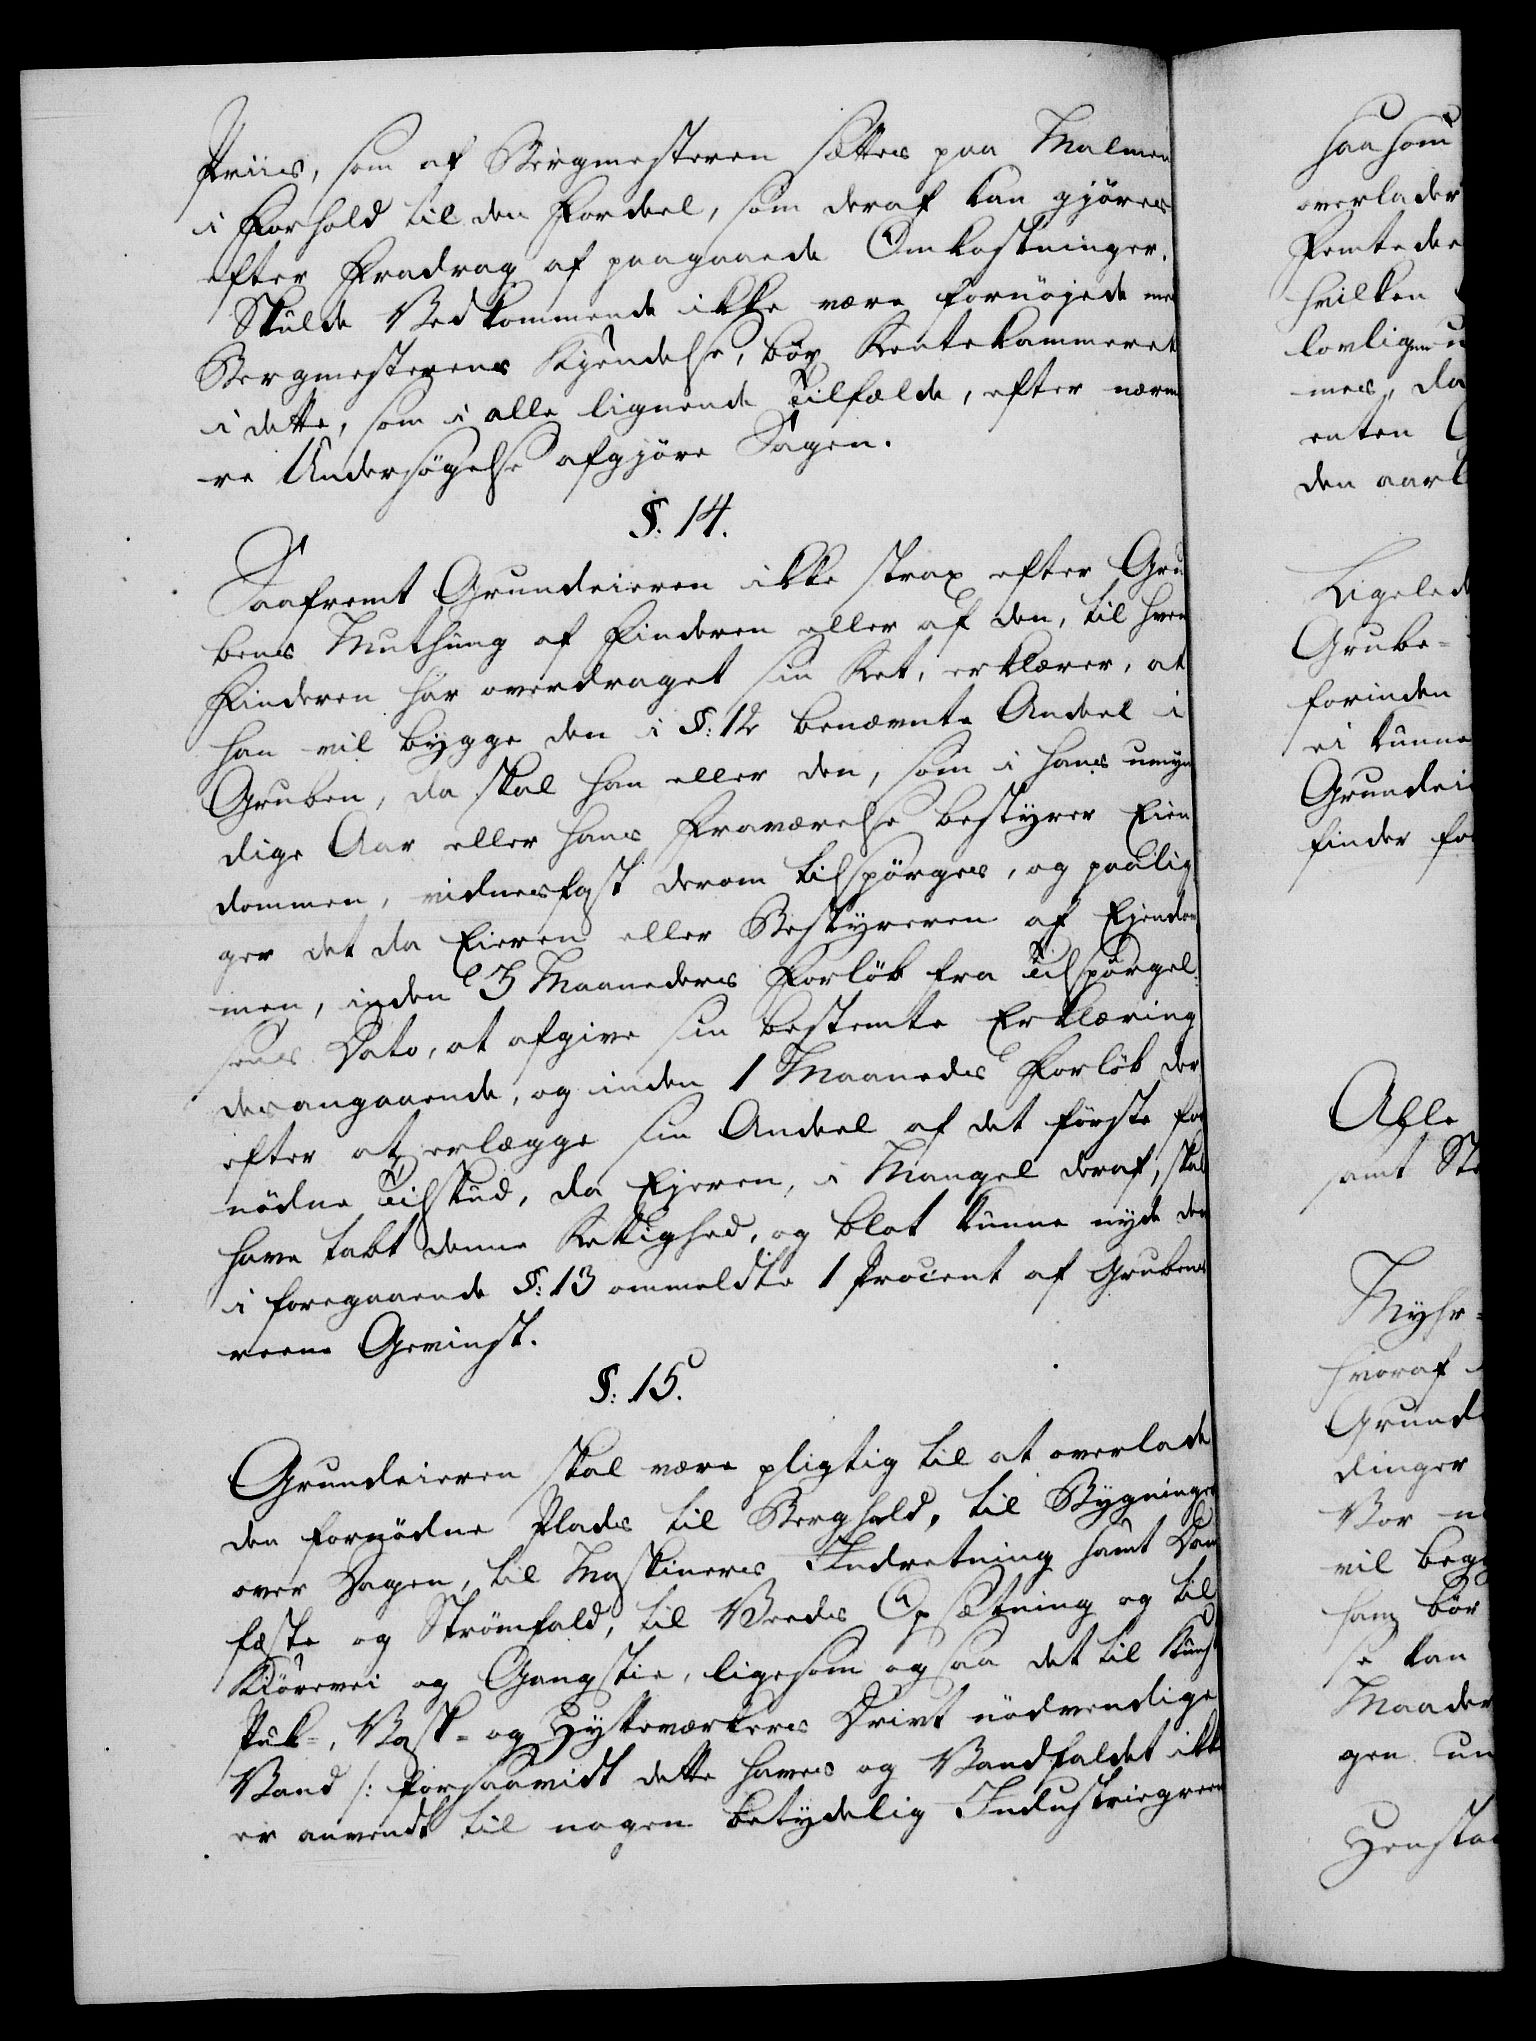 Priis, som af Bergmesteren sættes paa Malmen
i Forhold til den Fordeel, som deraf kan gjöres
efter Fradrag af paagaaende Omkostninger.
Skulde Vedkommende ikke være fornöjede med
Bergmesterens Kjendelse, bör Rentekammeret
i dette, som i alle lignende Tilfælde, efter nærme
re Undersögelse afgjöre Sagen.
§. 14.
Saafremt Grundeieren ikke strax efter Gru
bens Muthung af Finderen eller af den, til hvem
Finderen har overdraget sin Ret, erklærer, at
han vil bygge den i §: 12 benævnte Andeel i
Gruben, da skal han eller den, som i hans umyn
dige Aar eller hans Fraværelse bestyrer Eien
dommen, vidnesfast derom tilspörges, og paalig
ger det da Eieren eller Bestyreren af Ejendom
men, inden 3 Maaneders Forlöb fra Tilspörgel
sens Dato, at afgive sin bestemte Erklæring
desangaaende, og inden 1 Maaneds Forlöb der
efter at erlægge sin Andeel af det förste for
nödne Tilskud, da Ejeren, i Mangel deraf, skal
have tabt denne Rettighed, og blot kunne nyde den
i foregaaende §: 13 ommeldte 1 Procent af Grubens
reene Gevinst.
§: 15.
Grundeieren skal være pligtig til at overlade
den fornödne Plads til Berghald, til Bygninger
over Dagen, til Maskiners Indretning samt Dam
fæste og Strömfald, til Veeds Opsætning og til
Kiörevei og Gangstie, ligesom ogsaa det til Kunst
Puk-, Vask- og Hytteværkers Drivt nödvendige
Vand /: forsaavidt dette haves og Vandfaldet ikke
er anvendt til nogen betydelig Industriegreen
saasom
overlader
Femtedee
hvilken
lovligen u
mes, da
enten
den aarl
Ligeled
Grube-
forinden
ei kunne
Grundei
finder fo
Alle
samt St
Myhr-
hvoraf
Grund
dinger
Vor n
vil beg
ham bör
se kan
Maader
gen un
Hensta